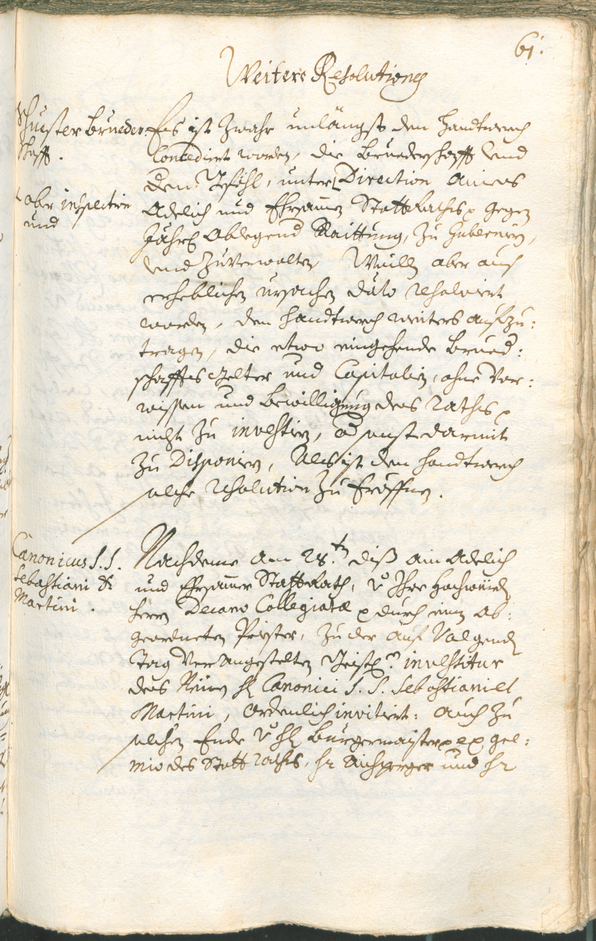 61.
Weitere Resolutiones
Schuester Brueder-
schafft.
Es ist zwahr unlängst dem Handtwerch
Concediert worden, die Bruederschafft und
dem , unter Direction aines
ober inspection
und
Adelich und Ehrsamen StattRaths gegen
Jährlich ablegend Raittung, zu guberniern,
und zuverwalten, Weill aber aus
erheblichen ursachen dato resolviert
worden, dem Handtwerch weiters aufzu:
tragen, die etwo eingehende Brued:
schaffts Gelter und Capitalien, ohne Vor:
wissen und Bewilligung des Raths
nicht zu investiern, od sonst darmit
zu Disponiern, Als ist dem Handtwerch
solche resolution zu Eröffnen.
Canonicus S. S.
Sebastiani et
Martini.
Nachdeme am 28.ten diß ain Adelich
und Ehrsamer StattRath, v Ihro Hochwürd
Herrn Decano Collegiatae durch einen ab:
geordneten Priester, zu der auf Volgend
Tag Vorangestelten investitur
des Neuen H Canonici S. S. Sebastiani et
Martini, Ordenlich invitiert: Auch zu
solchen Ende v H Burgermaister gre:
mio des StattRaths, Hr und Hr